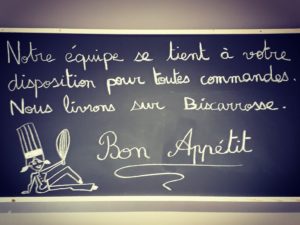 Notre équipe se tient à votre
disposition pour toutes commandes.
Nous livrons sur Biscarrosse.
Bon Appétit